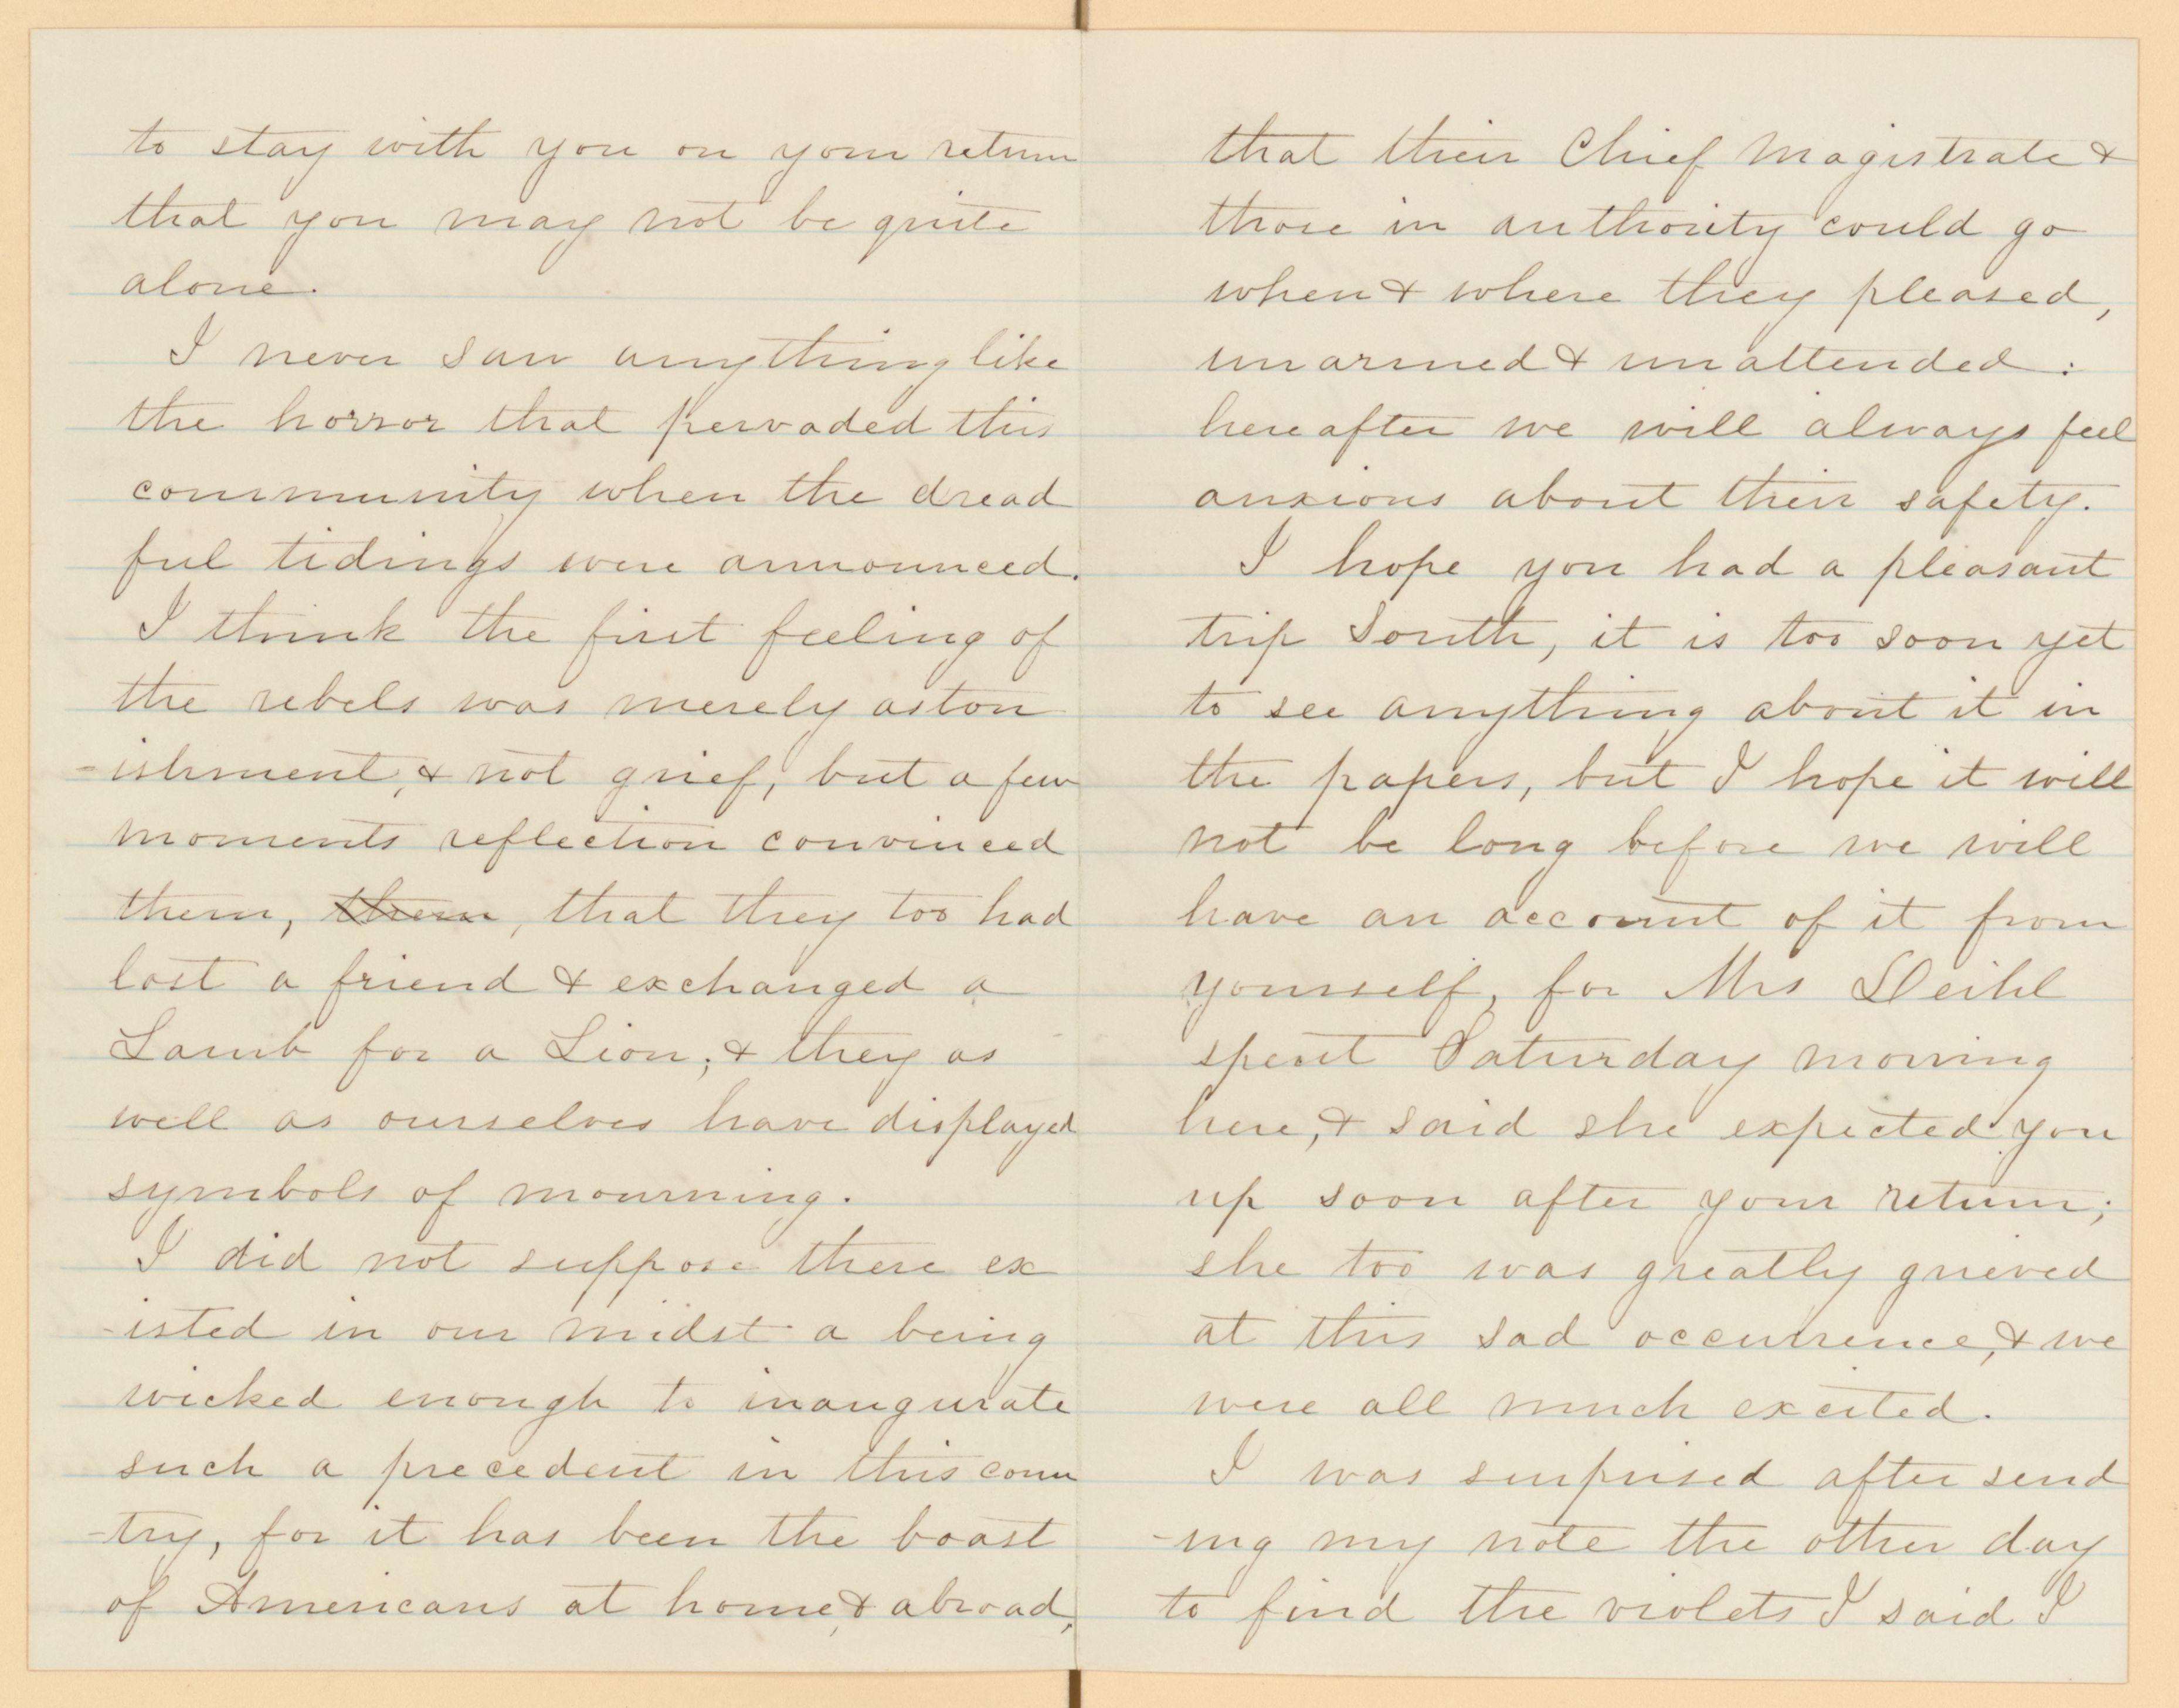 to stay with you on your return
that you may not be quite
alone.
I never saw anything like
the horror that pervaded this
community when the dread
ful tidings were announced.
I think the first feeling of
the rebels was merely aston
-ishment, & not grief, but a few
moments reflection convinced
them, them, that they too had
lost a friend & exchanged a
Lamb for a Lion; & they as
well as ourselves have displayed
symbols of mourning.
I did not suppose there ex
-isted in our midst a being
wicked enough to inaugurate
such a precedent in this coun
-try, for it has been the boast
of Americans at home, & abroad,
that their Chief Magistrate &
those in authority could go
when & where they pleased,
unarmed & unattended:
hereafter we will always feel
anxious about their safety.
I hope you had a pleasant
trip South, it is too soon yet
to see anything about it in
the papers, but I hope it will
not be long before we will
have an account of it from
yourself, for Mrs
spent Saturday morning
here, & said she expected you
up soon after your return;
she too was greatly grieved
at this sad occurrence, & we
were all much excited.
I was surprised after send
-ing my note the other day
to find the violets I said I